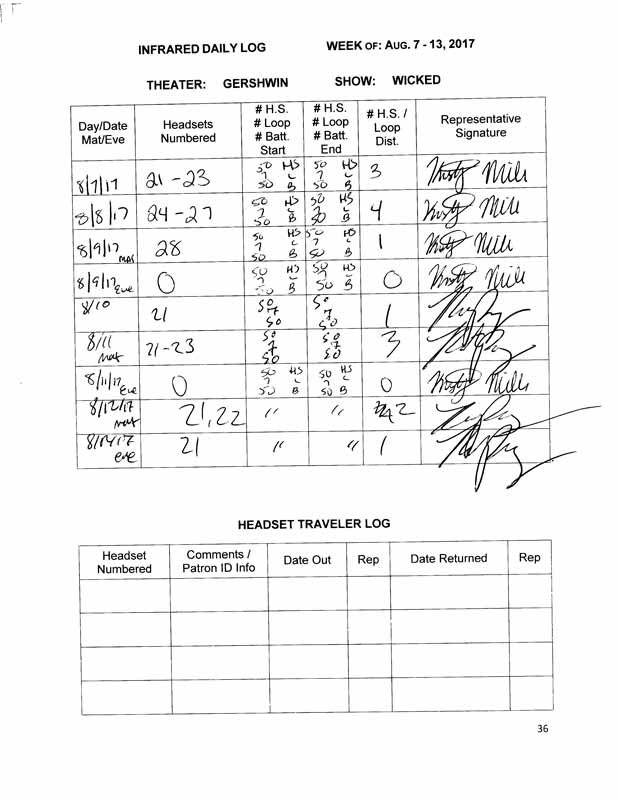 INFRARED DAILY LOG WEEK OF: AUG. 7 - 13, 2017
THEATER: GERSHWIN SHOW: WICKED
Day/Date Mat/Eve Headsets Numbered # H.S. # Loop # Batt. Start # H.S. # Loop # Batt. End # H.S. / Loop Dist. Representative Signature
8/7/17 21-23 50 HS 7 L 50 B 50 HS 7 L 50 B 3 Kristy Mills
8/8/17 24-27 50 HS 7 L 50 B 50 HS 7 L 50 B 4 Kristy Mills
8/9/17 Mat 28 50 HS 7 L 50 B 50 HS 7 L 50 B 1 Kristy Mills
8/9/17 Eve 0 50 HS 7 L 50 B 50 HS 7 L 50 B 0 Kristy Mills
8/10 21 50 7 50 50 7 50 1
8/11 Mat 21-23 50 7 50 50 7 50 3
8/11/17 Eve 0 50 HS 7 L 50 B 50 HS 7 L 50 B 0 Kristy Mills
8/12/17 Mat 21,22 " " 2
eve 21 " " 1
HEADSET TRAVELER LOG
Headset Numbered Comments / Patron ID Info Date Out Rep Date Returned Rep
36